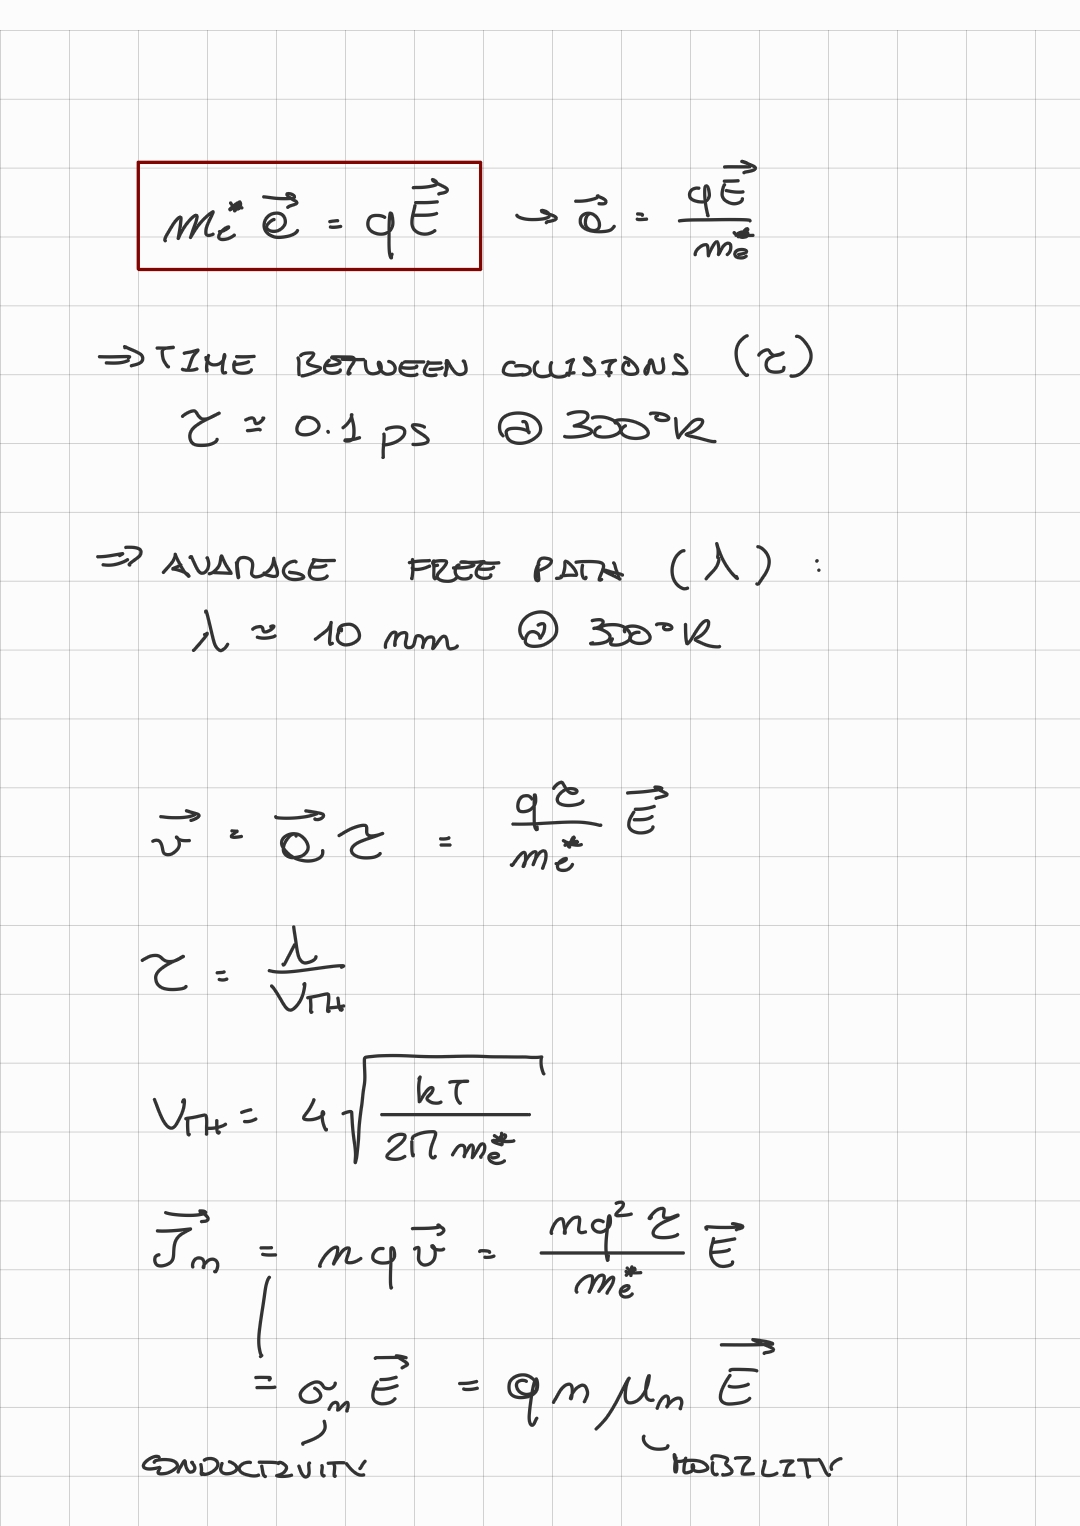 mₑ* a⃗ = q E⃗ → a⃗ = qE⃗ / mₑ*
⇒ TIME BETWEEN COLLISIONS (τ)
τ ≃ 0.1 ps @ 300°K
⇒ AVARAGE FREE PATH (λ) :
λ ≃ 10 nm @ 300°K
v⃗ = a⃗ τ = qτ / mₑ* E⃗
τ = λ / V_TH
V_TH = 4 √(kT / 2π mₑ*)
J⃗ₙ = n q v⃗ = nq² τ / mₑ* E⃗
= σₙ E⃗ = q n μₙ E⃗
CONDUCTIVITY MOBILITY